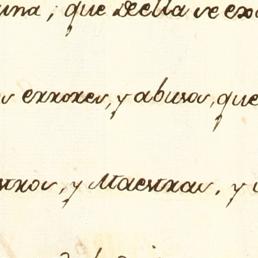 una, que deella se exe
errores, y abusos, que
stros, y Maestras, y